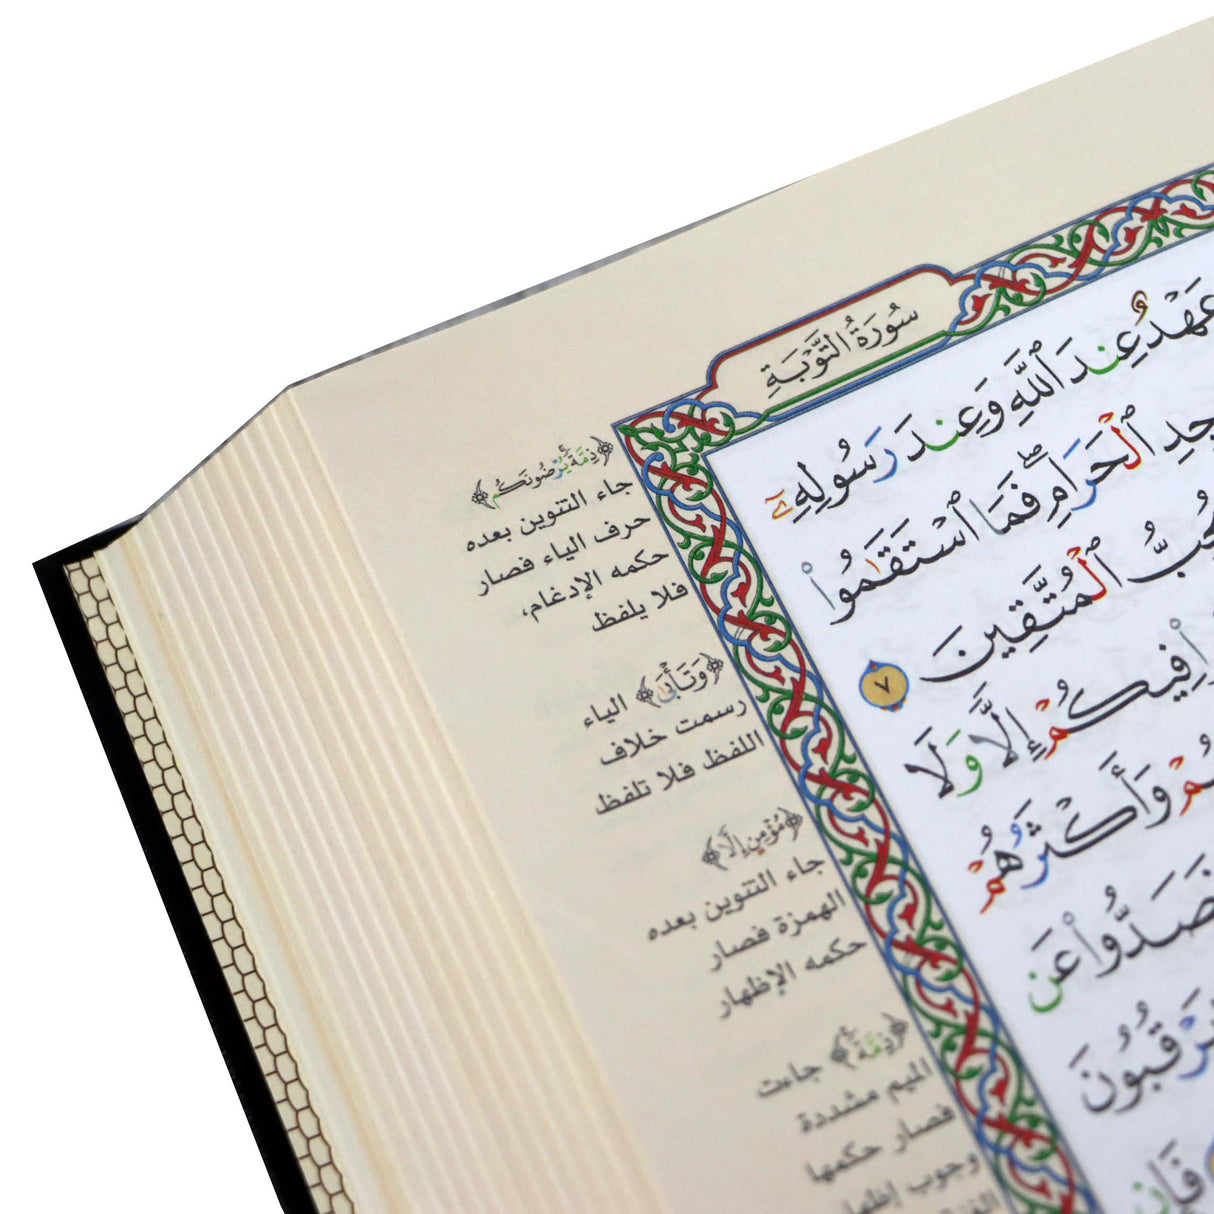 سُورَةُ التَّوْبَةِ
عَهْدٌ عِندَ ٱللَّهِ وَعِندَ رَسُولِهِۦٓ
ٱلْحَرَامِۖ فَمَا ٱسْتَقَٰمُوا۟
ٱلْمُتَّقِينَ ٧
فِيكُمْ إِلًّا وَلَا
وَأَكْثَرُهُمْ
فَصَدُّوا۟ عَن
يَرْقُبُونَ
فَإِن
﴿ذِمَّةً يُرْضُونَكُم﴾
جاء التنوين بعده
حرف الياء فصار
حكمه الإدغام،
فلا يلفظ
﴿وَتَأْبَىٰ﴾ الياء
رسمت خلاف
اللفظ فلا تلفظ
﴿مُؤْمِنٍ إِلًّا﴾
جاء التنوين بعده
الهمزة فصار
حكمه الإظهار
﴿ذِمَّةً﴾ جاءت
الميم مشددة
فصار حكمها
وجوب إظهار